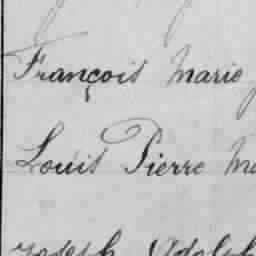 François Marie
Louis Pierre Ma
Joseph Adolph